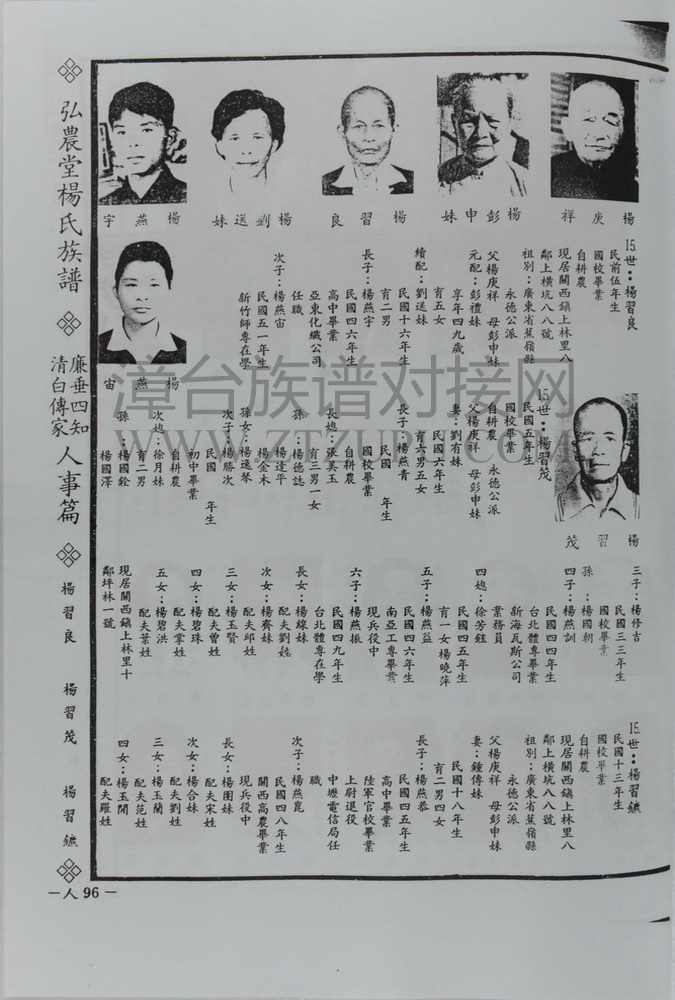 楊庚祥
楊彭申妹
楊習良
楊劉送妹
楊燕宇
15.世：楊習良
民前伍年生
國校畢業
自耕農
現居關西鎮上林里八
鄰上橫坑八八號
祖別：廣東省蕉嶺縣
永德公派
父楊庚祥　母彭申妹
元配：彭禮妹
享年四九歲
育五女
續配：劉送妹
民國十六年生
育二男
長子：楊燕宇
民國四六年生
高中畢業
亞東化纖公司
任職
次子：楊燕宙
民國五一年生
新竹師專在學
楊燕宙
楊習茂
15.世：楊習茂
民國五年生
國校畢業
自耕農　永德公派
父楊庚祥　母彭申妹
妻：劉有妹
民國六年生
育六男五女
長子：楊燕青
民國　年生
國校畢業
自耕農
長媳：張美玉
育三男一女
孫：楊德誌
楊達平
楊金木
孫女：楊逸琴
次子：楊勝次
民國　年生
初中畢業
自耕農
次媳：徐月妹
育二男
孫：楊國銓
楊國澤
三子：楊修吉
民國三三年生
國校畢業
孫：楊國朝
四子：楊燕訓
民國四四年生
台北體專畢業
新海瓦斯公司
業務員
四媳：徐芳鈺
民國四五年生
育一女楊曉萍
五子：楊燕益
民國四六年生
南亞工專畢業
現兵役中
六子：楊燕振
民國四九年生
台北體專在學
長女：楊線妹
配夫劉姓
次女：楊齊妹
配夫邱姓
三女：楊玉賢
配夫曾姓
四女：楊碧珠
配夫掌姓
五女：楊碧洪
配夫葉姓
現居關西鎮上林里十
鄰坪林一號
15.世：楊習鑣
民國十三年生
國校畢業
自耕農
現居關西鎮上林里八
鄰上橫坑八八號
祖別：廣東省蕉嶺縣
永德公派
父楊庚祥　母彭申妹
妻：鍾傳妹
民國十八年生
育二男四女
長子：楊燕恭
民國四五年生
高中畢業
陸軍官校畢業
上尉退役
中壢電信局任
職
次子：楊燕崑
民國四八年生
關西高農畢業
現兵役中
長女：楊團妹
配夫宋姓
次女：楊合妹
配夫劉姓
三女：楊玉蘭
配夫范姓
四女：楊玉閑
配夫羅姓
弘農堂楊氏族譜
廉垂四知
清白傳家
人事篇
楊習良
楊習茂
楊習鑣
—人 96—
漳台族谱对接网
WWW.ZTZUPU.COM